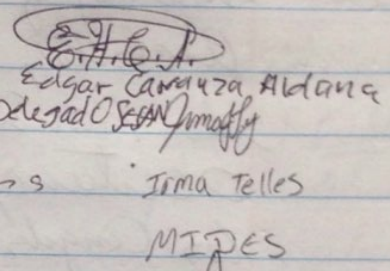 E.H.C.A.
Edgar Carranza Aldana
Delegado SESAN
s Irma Telles
MIDES